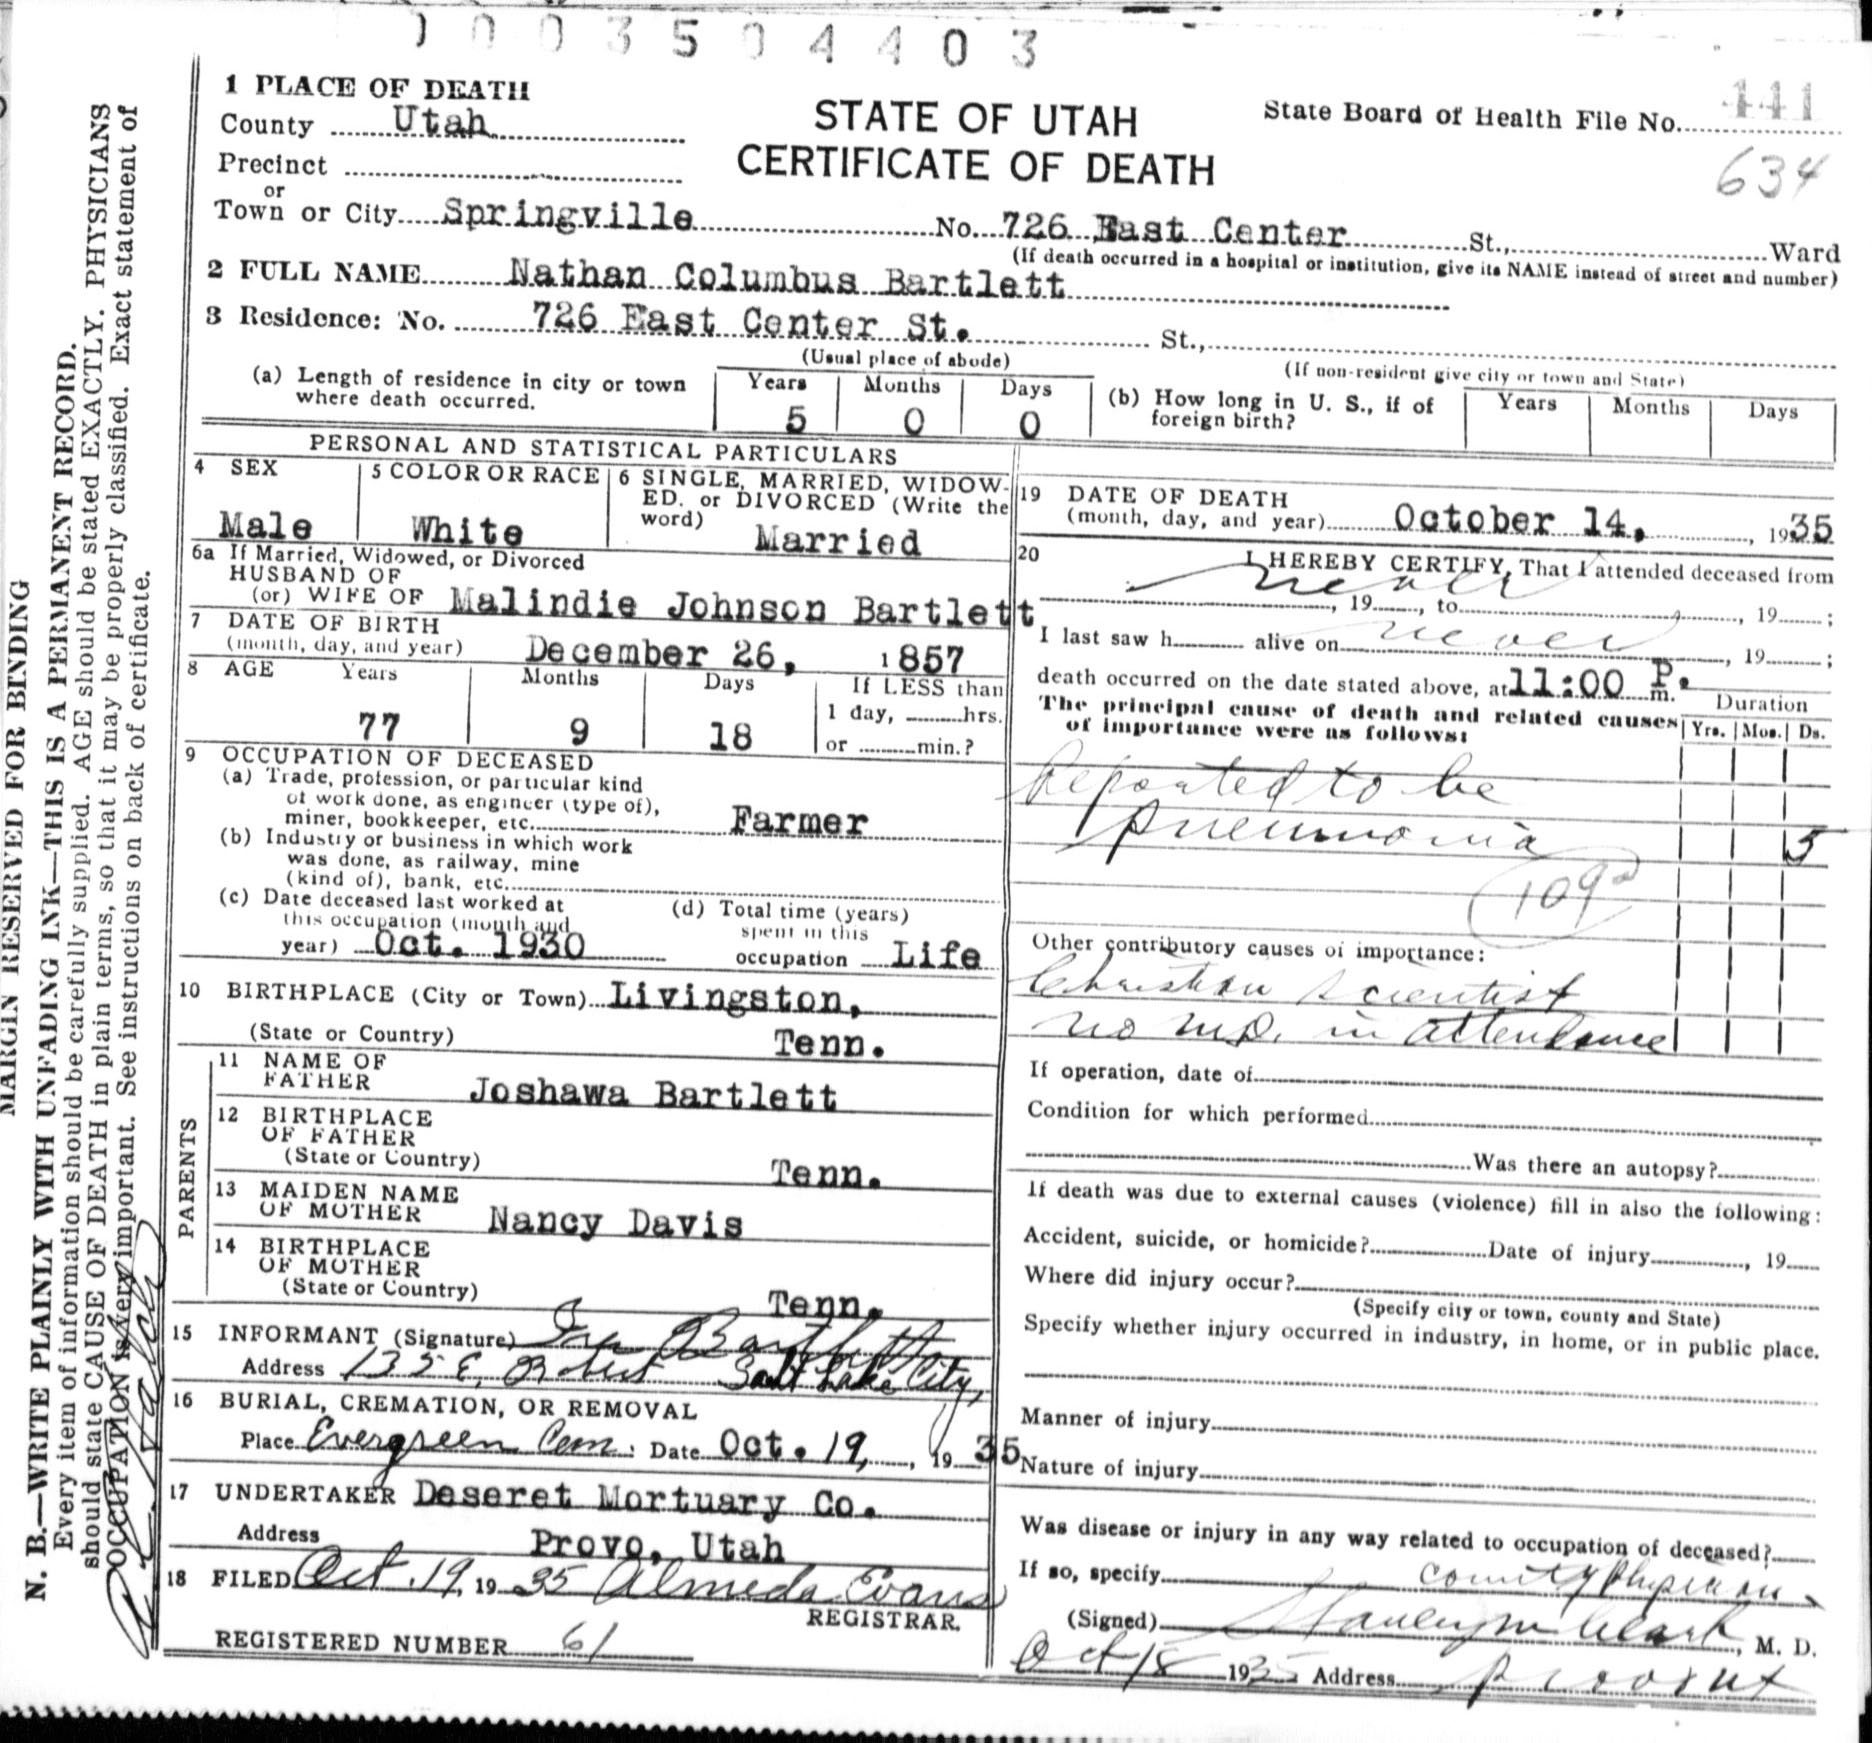 0003504403
1 PLACE OF DEATH
County Utah
Precinct
or
Town or City Springville No. 726 East Center St., Ward
(If death occurred in a hospital or institution, give its NAME instead of street and number)
STATE OF UTAH
CERTIFICATE OF DEATH
State Board of Health File No. 441
634
2 FULL NAME Nathan Columbus Bartlett
3 Residence: No. 726 East Center St. St.,
(Usual place of abode)
(If non-resident give city or town and State)
(a) Length of residence in city or town
where death occurred.
Years Months Days
5 0 0
(b) How long in U. S., if of
foreign birth?
Years Months Days
PERSONAL AND STATISTICAL PARTICULARS
4 SEX
Male
5 COLOR OR RACE
White
6 SINGLE, MARRIED, WIDOW-
ED, or DIVORCED (Write the
word)
Married
6a If Married, Widowed, or Divorced
HUSBAND OF
(or) WIFE OF Malindie Johnson Bartlett
7 DATE OF BIRTH
(month, day, and year) December 26, 1857
8 AGE Years Months Days If LESS than
1 day, hrs.
or min.?
77 9 18
9 OCCUPATION OF DECEASED
(a) Trade, profession, or particular kind
of work done, as engineer (type of),
miner, bookkeeper, etc. Farmer
(b) Industry or business in which work
was done, as railway, mine
(kind of), bank, etc.
(c) Date deceased last worked at
this occupation (month and
year) Oct. 1930
(d) Total time (years)
spent in this
occupation Life
10 BIRTHPLACE (City or Town) Livingston,
(State or Country) Tenn.
PARENTS
11 NAME OF
FATHER Joshawa Bartlett
12 BIRTHPLACE
OF FATHER
(State or Country) Tenn.
13 MAIDEN NAME
OF MOTHER Nancy Davis
14 BIRTHPLACE
OF MOTHER
(State or Country) Tenn.
15 INFORMANT (Signature) Ira Bartlett
Address 135 E. Robert Salt Lake City,
16 BURIAL, CREMATION, OR REMOVAL
Place Evergreen Cem. Date Oct. 19, 1935
17 UNDERTAKER Deseret Mortuary Co.
Address Provo, Utah
18 FILED Oct. 19, 1935 Almeda Evans
REGISTRAR.
REGISTERED NUMBER 61
19 DATE OF DEATH
(month, day, and year) October 14, 1935
20 I HEREBY CERTIFY, That I attended deceased from
never, 19 , to , 19 ;
I last saw h alive on never, 19 ;
death occurred on the date stated above, at 11:00 P. m.
The principal cause of death and related causes
of importance were as follows:
Duration
Yrs. Mos. Ds.
Reported to be
pneumonia 5
109a
Other contributory causes of importance:
Christian Scientist
no M.D. in attendance
If operation, date of
Condition for which performed
Was there an autopsy?
If death was due to external causes (violence) fill in also the following:
Accident, suicide, or homicide? Date of injury , 19
Where did injury occur?
(Specify city or town, county and State)
Specify whether injury occurred in industry, in home, or in public place.
Manner of injury
Nature of injury
Was disease or injury in any way related to occupation of deceased?
If so, specify County Physician
(Signed) Stanley M Clark, M. D.
Oct 18 1935 Address Provo Ut
MARGIN RESERVED FOR BINDING
N. B.—WRITE PLAINLY WITH UNFADING INK—THIS IS A PERMANENT RECORD.
Every item of information should be carefully supplied. AGE should be stated EXACTLY. PHYSICIANS
should state CAUSE OF DEATH in plain terms, so that it may be properly classified. Exact statement of
OCCUPATION is very important. See instructions on back of certificate.